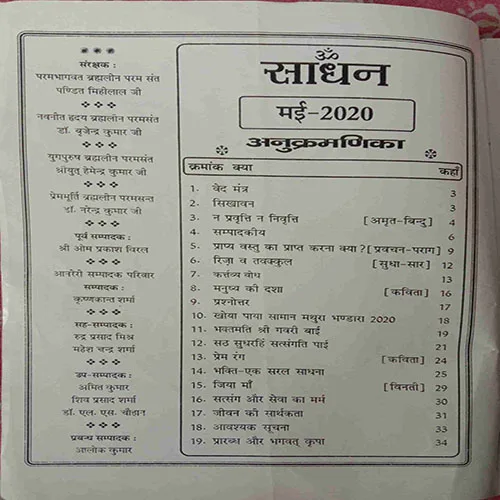 संरक्षक :
परमभागवत ब्रह्मलीन परम संत
पण्डित मिहीलाल जी
नवनीत हृदय ब्रह्मलीन परमसंत
डॉ. बृजेन्द्र कुमार जी
युगपुरुष ब्रह्मलीन परमसंत
श्रीयुत् हेमेन्द्र कुमार जी
प्रेममूर्ति ब्रह्मलीन परमसन्त
डॉ. नरेन्द्र कुमार जी
पूर्व सम्पादक :
श्री ओम प्रकाश विरल
आनरेरी सम्पादक परिवार
सम्पादक :
कृष्णकान्त शर्मा
सह-सम्पादक :
रुद्र प्रसाद मिश्र
महेश चन्द्र शर्मा
उप-सम्पादक :
अमित कुमार
शिव प्रसाद शर्मा
डॉ. एल. एस. चौहान
प्रबन्ध सम्पादक :
आलोक कुमार
ॐ
साधन
मई-2020
अनुक्रमणिका
क्रमांक क्या कहाँ
1. वेद मंत्र 3
2. सिखावन 3
3. न प्रवृत्ति न निवृत्ति [अमृत-बिन्दु] 4
4. सम्पादकीय 6
5. प्राप्य वस्तु का प्राप्त करना क्या? [प्रवचन-पराग] 9
6. रिज़ा व तवक्कुल [सुधा-सार] 12
7. कर्त्तव्य बोध 13
8. मनुष्य की दशा [कविता] 16
9. प्रश्नोत्तर 17
10. खोया पाया सामान मथुरा भण्डारा 2020 18
11. भक्तमति श्री गवरी बाई 19
12. सठ सुधरहिं सत्संगति पाई 21
13. प्रेम रंग [कविता] 24
14. भक्ति-एक सरल साधना 25
15. जिया माँ [विनती] 29
16. सत्संग और सेवा का मर्म 30
17. जीवन की सार्थकता 31
18. आवश्यक सूचना 33
19. प्रारब्ध और भगवत् कृपा 34